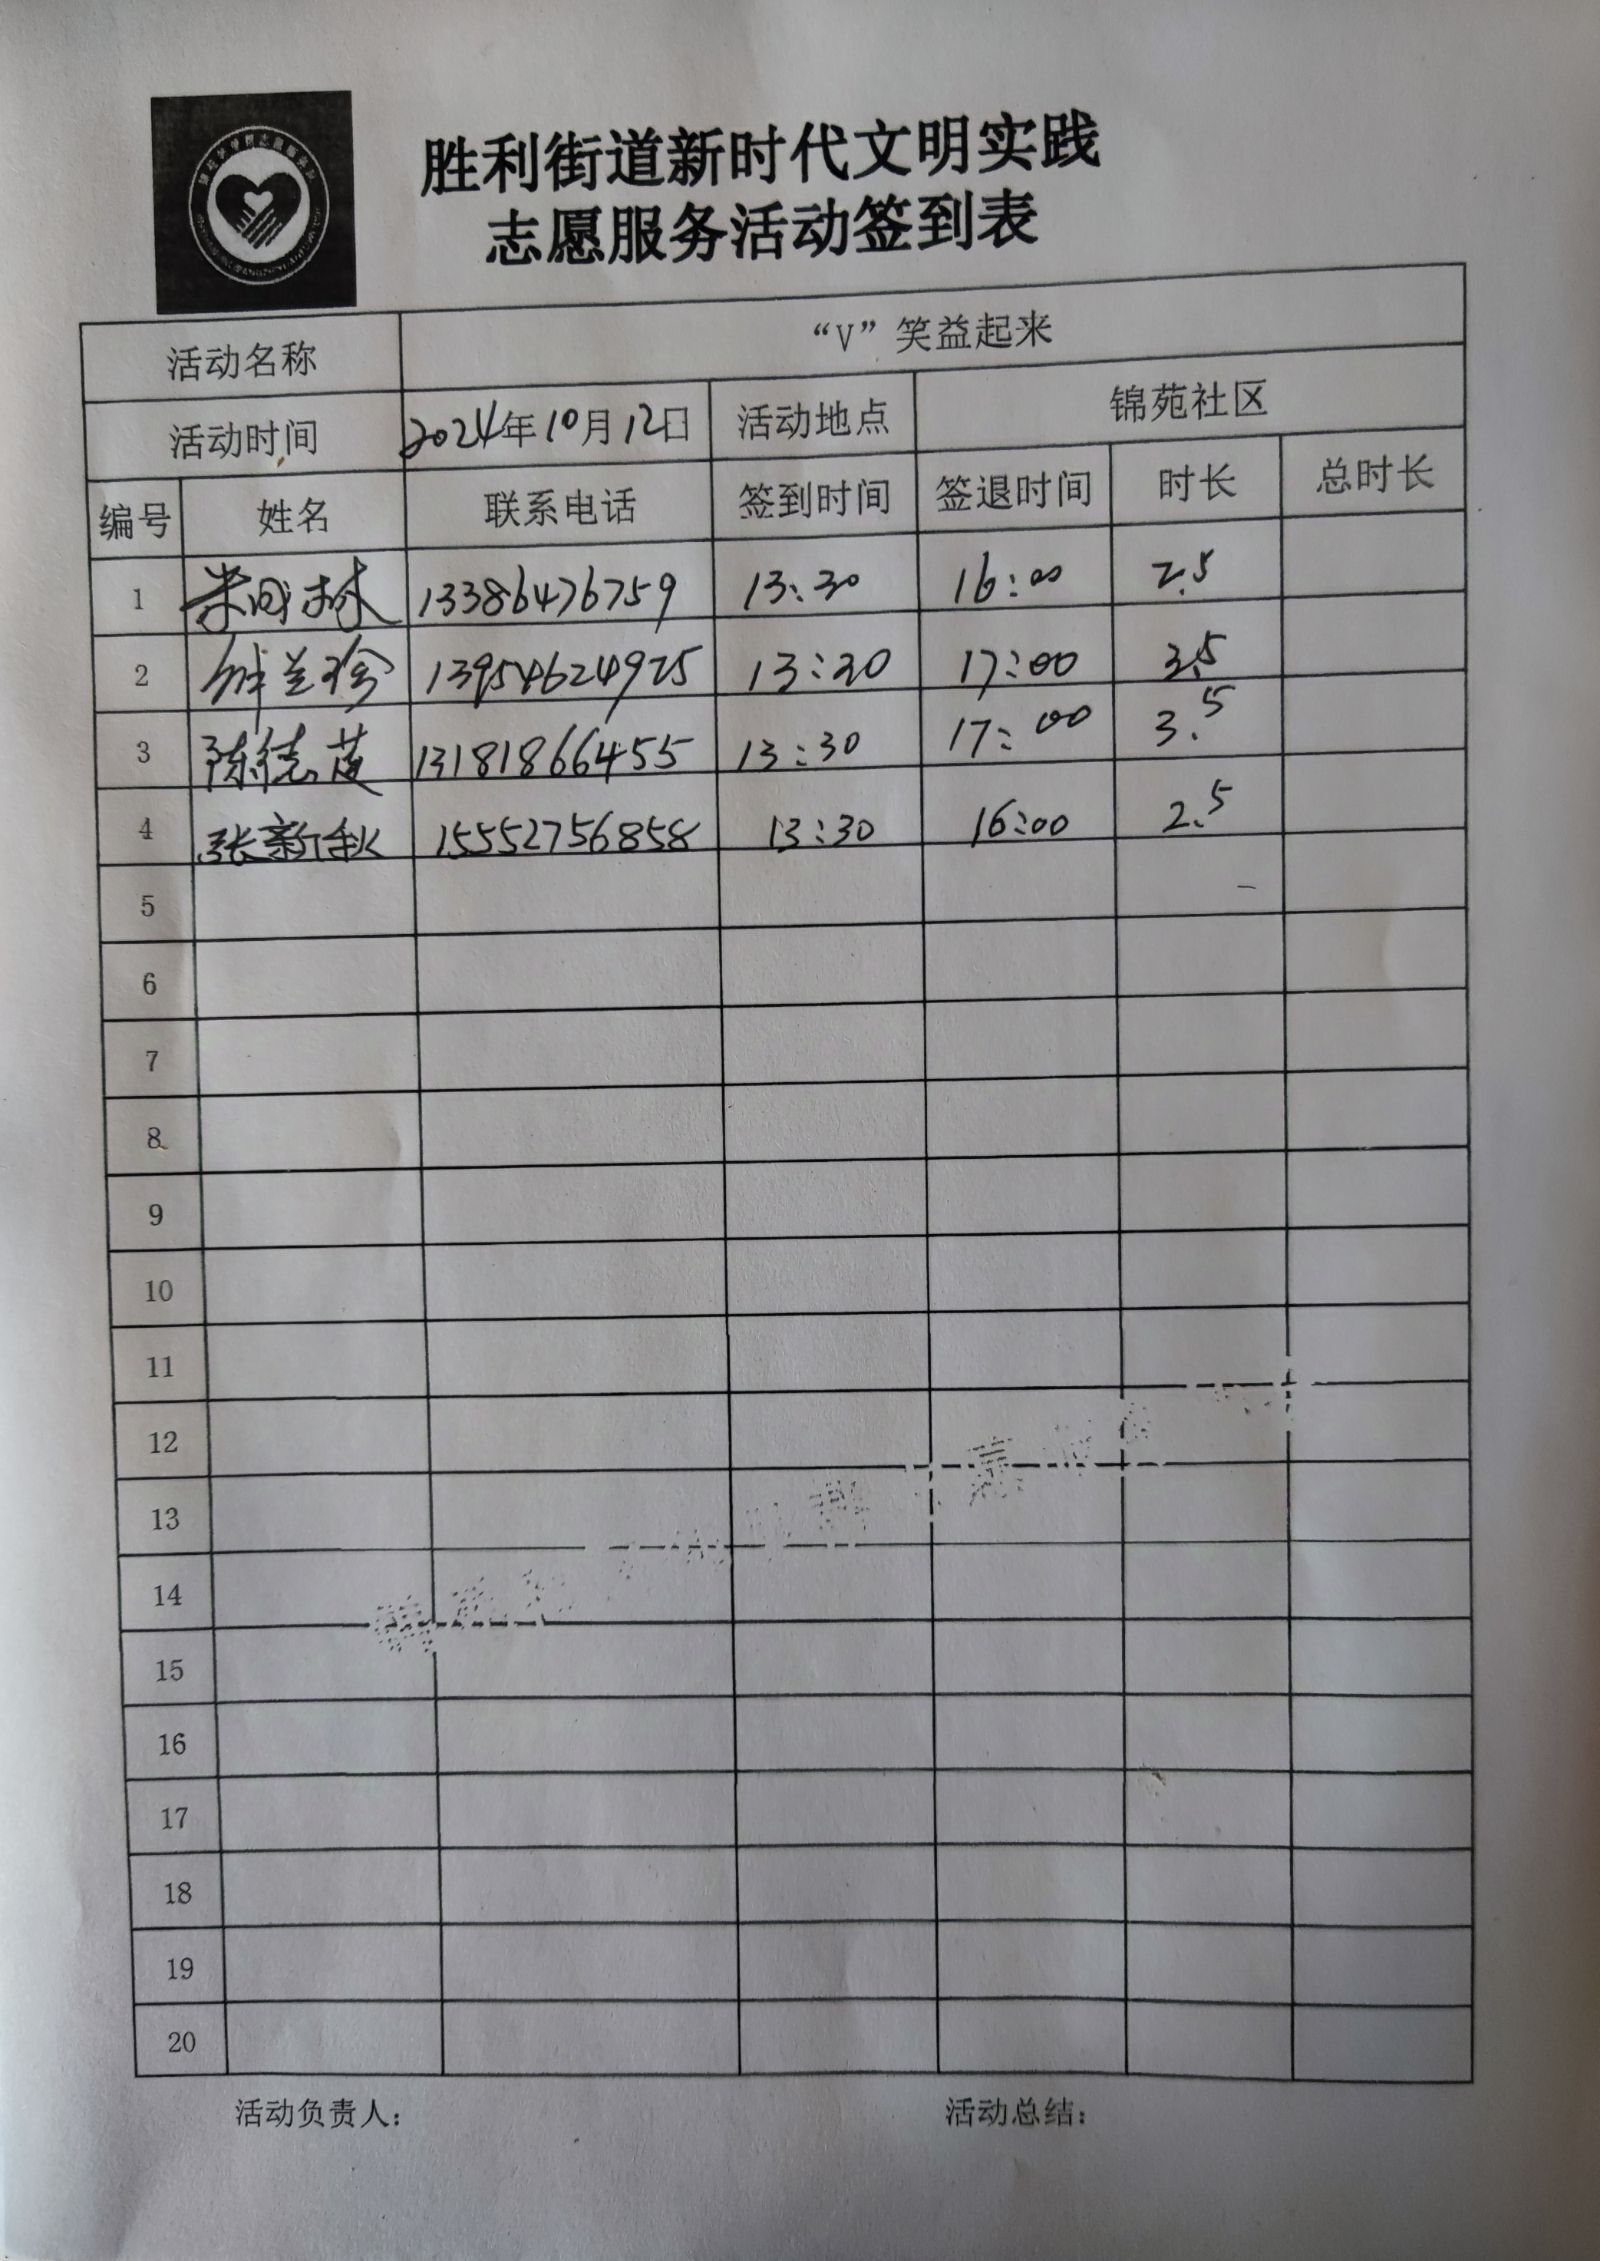 胜利街道新时代文明实践
志愿服务活动签到表
活动名称 “V”笑益起来
活动时间 2024年10月12日 活动地点 锦苑社区
编号 姓名 联系电话 签到时间 签退时间 时长 总时长
1 13386476759 13:30 16:00 2.5
2 兰珍 13954624925 13:30 17:00 3.5
3 陈德 13181866455 13:30 17:00 3.5
4 张新秋 15552756858 13:30 16:00 2.5
5
6
7
8
9
10
11
12
13
14
15
16
17
18
19
20
活动负责人: 活动总结: